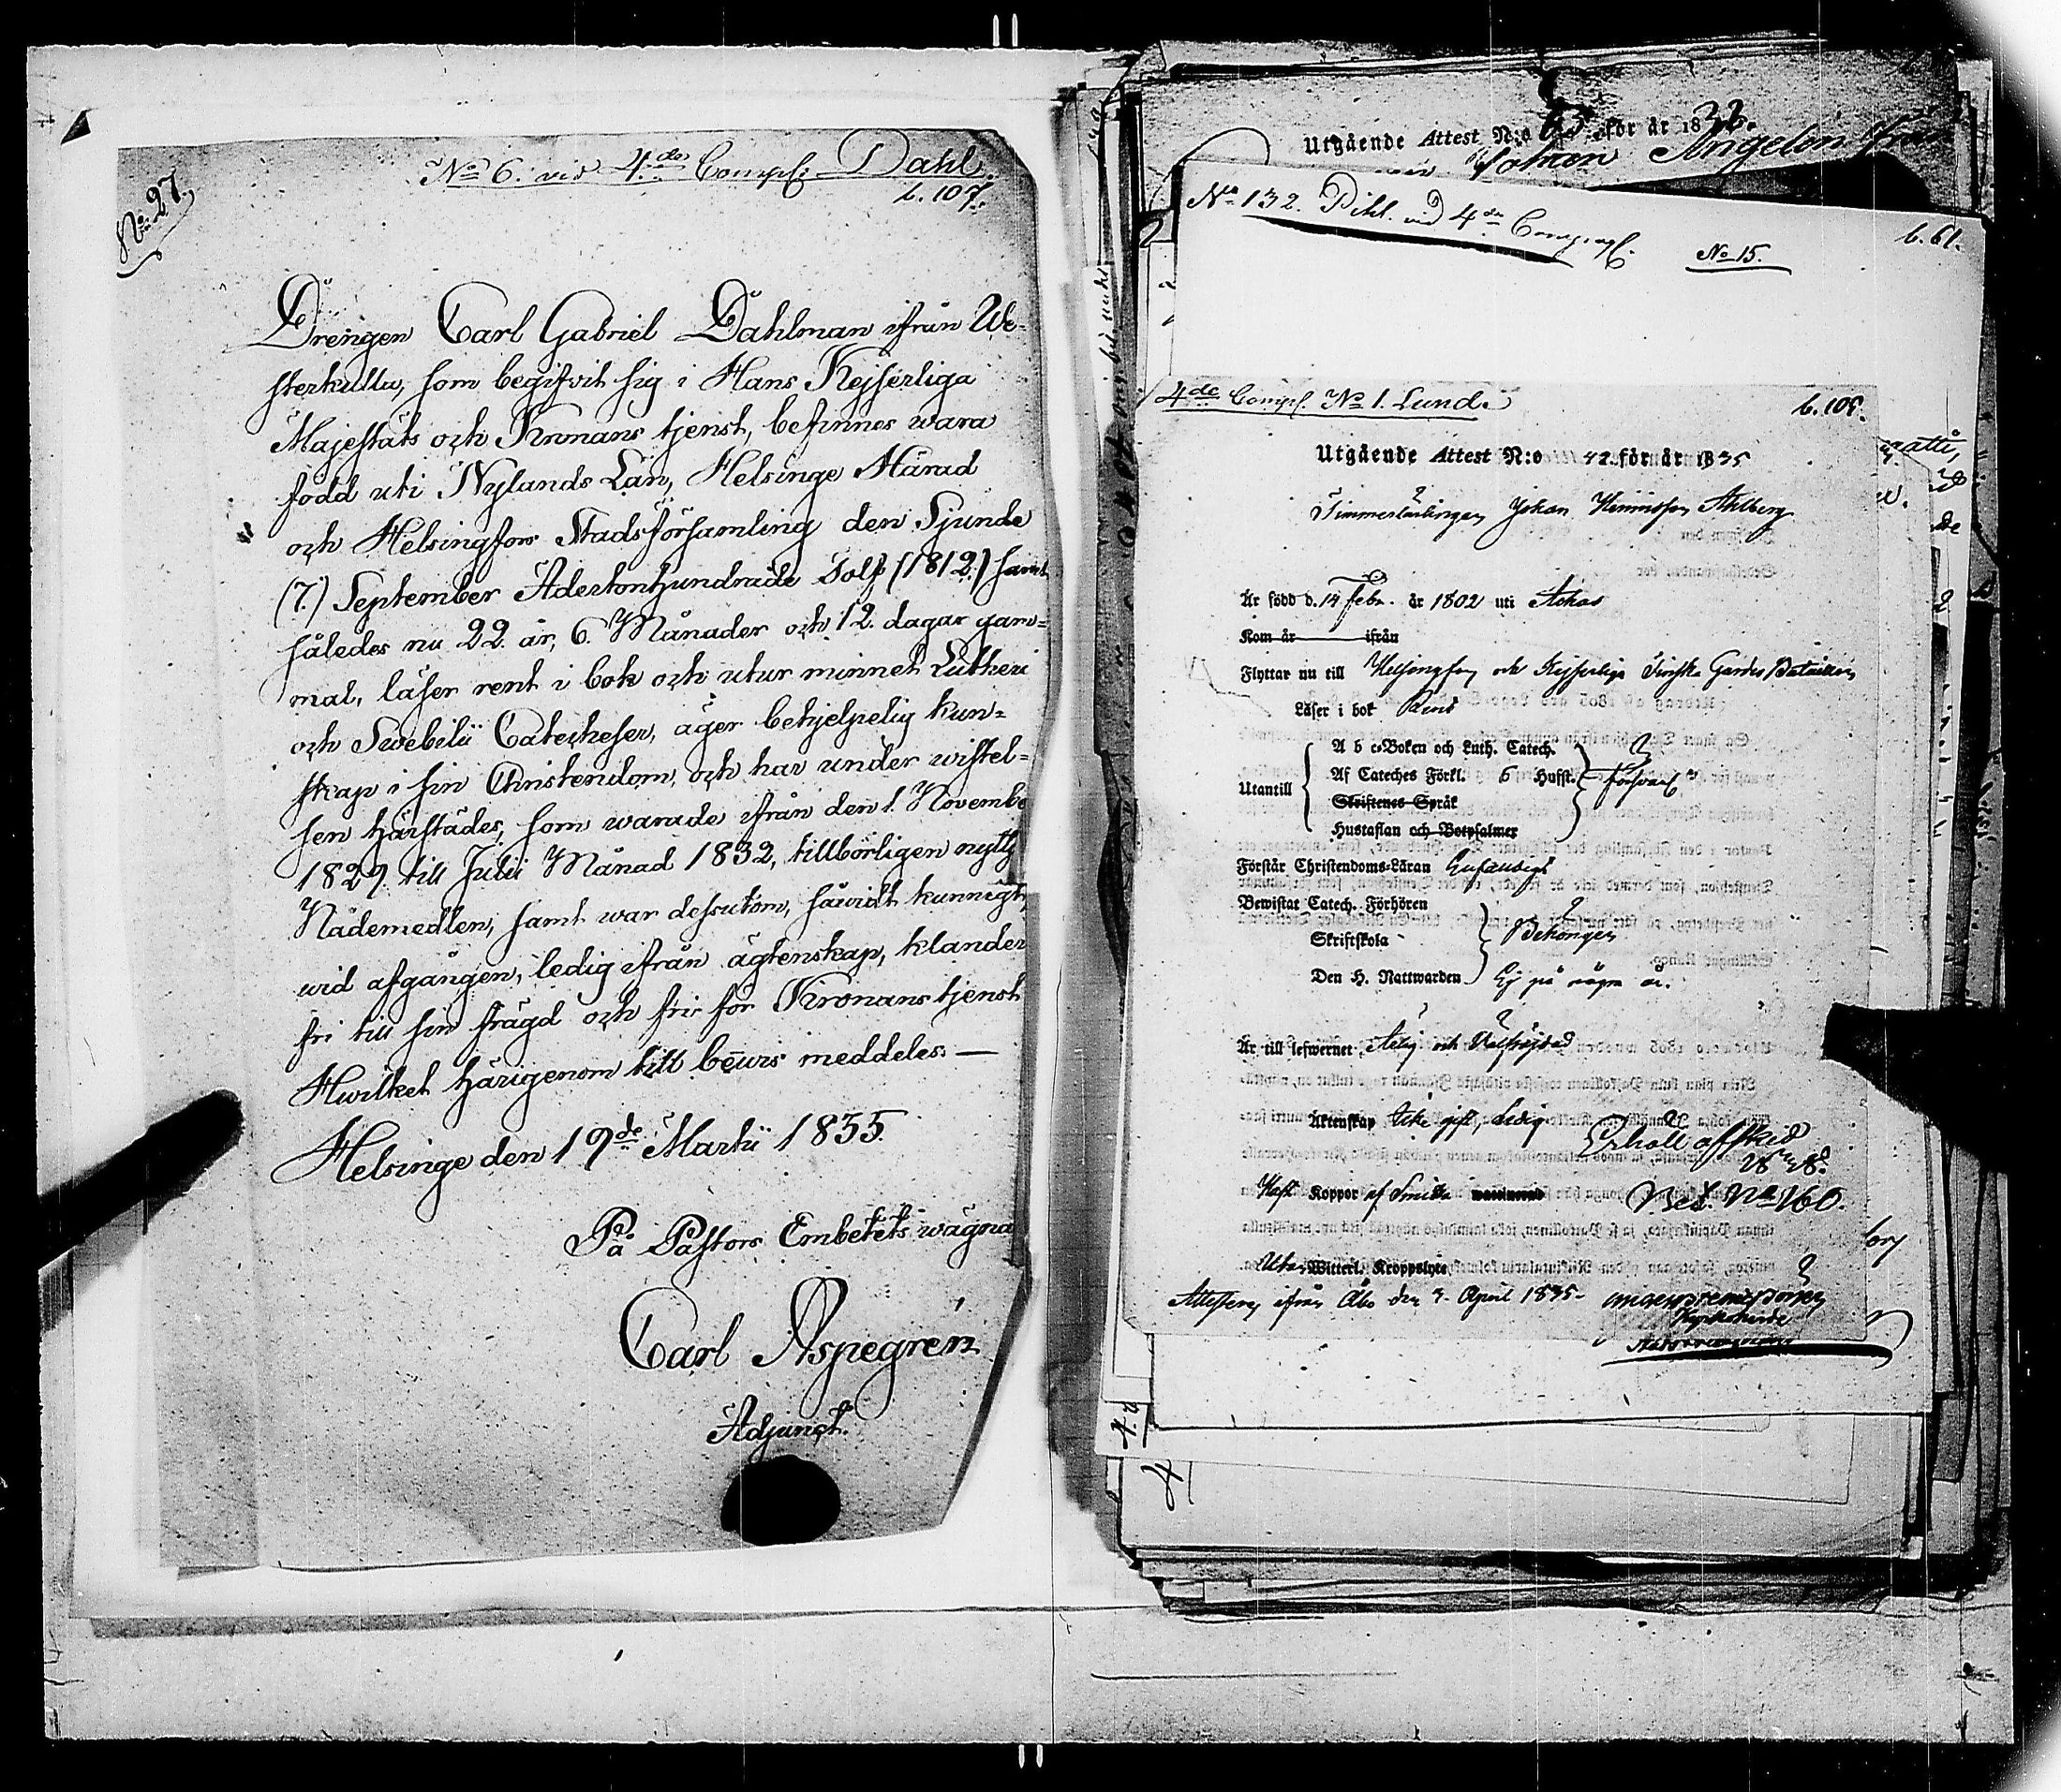 No 27.
No 6. vid 4de Comp: Dahl.
b. 107.
Drengen Carl Gabriel Dahlman ifrån We-
sterkulla, som begifvit sig i Hans Kejserliga
Majestäts och Kronans tjenst, befinnes wara
född uti Nylands Län, Helsinge Härad
och Helsingfors Stadsförsamling den Sjunde
(7.) September Adertonhundrade Tolf (1812.) samt
således nu 22 år, 6. Månader och 12. dagar gam=
mal, läser rent i bok och utur minnet Lutheri
och Swebilii Catecheser, äger behjelpelig kun=
skap i sin Christendom, och har under wistel=
sen härstädes, som warade ifrån den 1. Novemb
1829 till Julii Månad 1832, tillbörligen nyttj
Nådemedlen, samt war dessutom, såwidt kunnigt,
wid afgången, ledig ifrån ägtenskap, klander
fri till sin frägd och fri för Kronans tjenst
Hwilket härigenom till bewis meddeles. —
Helsinge den 19de Martii 1835.
På Pastors Embetets wägna
Carl Aspegren
Adjunct.
Utgående Attest N:o 65 för år 18
Johan Angelin
No 132. Pihl. vid 4de Comp.
No 15.
b. 61.
4de Comp. No 1. Lund.
b. 108.
Utgående Attest N:o 42 för år 1835
Johan Ahlberg
Är född d. 14 Febr. år 1802 uti
Kom år ifrån
Flyttar nu till Helsingfors och Kejserliga Finska Gardes Bataillon
Läser i bok Rent
A b c-Boken och Luth. Catech.
Utantill Af Cateches Förkl. 6 Hufst. försvarl.
Skriftenes Språk
Hustaflan och Botpsalmer
Förstår Christendoms-Läran Enfaldigt
Bewistat Catech. Förhören
Skriftskola
Den H. Nattwarden Ej på några år.
Är till lefwernet Ärlig och Välfrejdad
Äktenskap Icke gift, Ledig
Erhöll afsked
Haft Koppor
Bet. No 160.
Utan Witterl. Kroppslyte
Åbo den 3 April 1835.